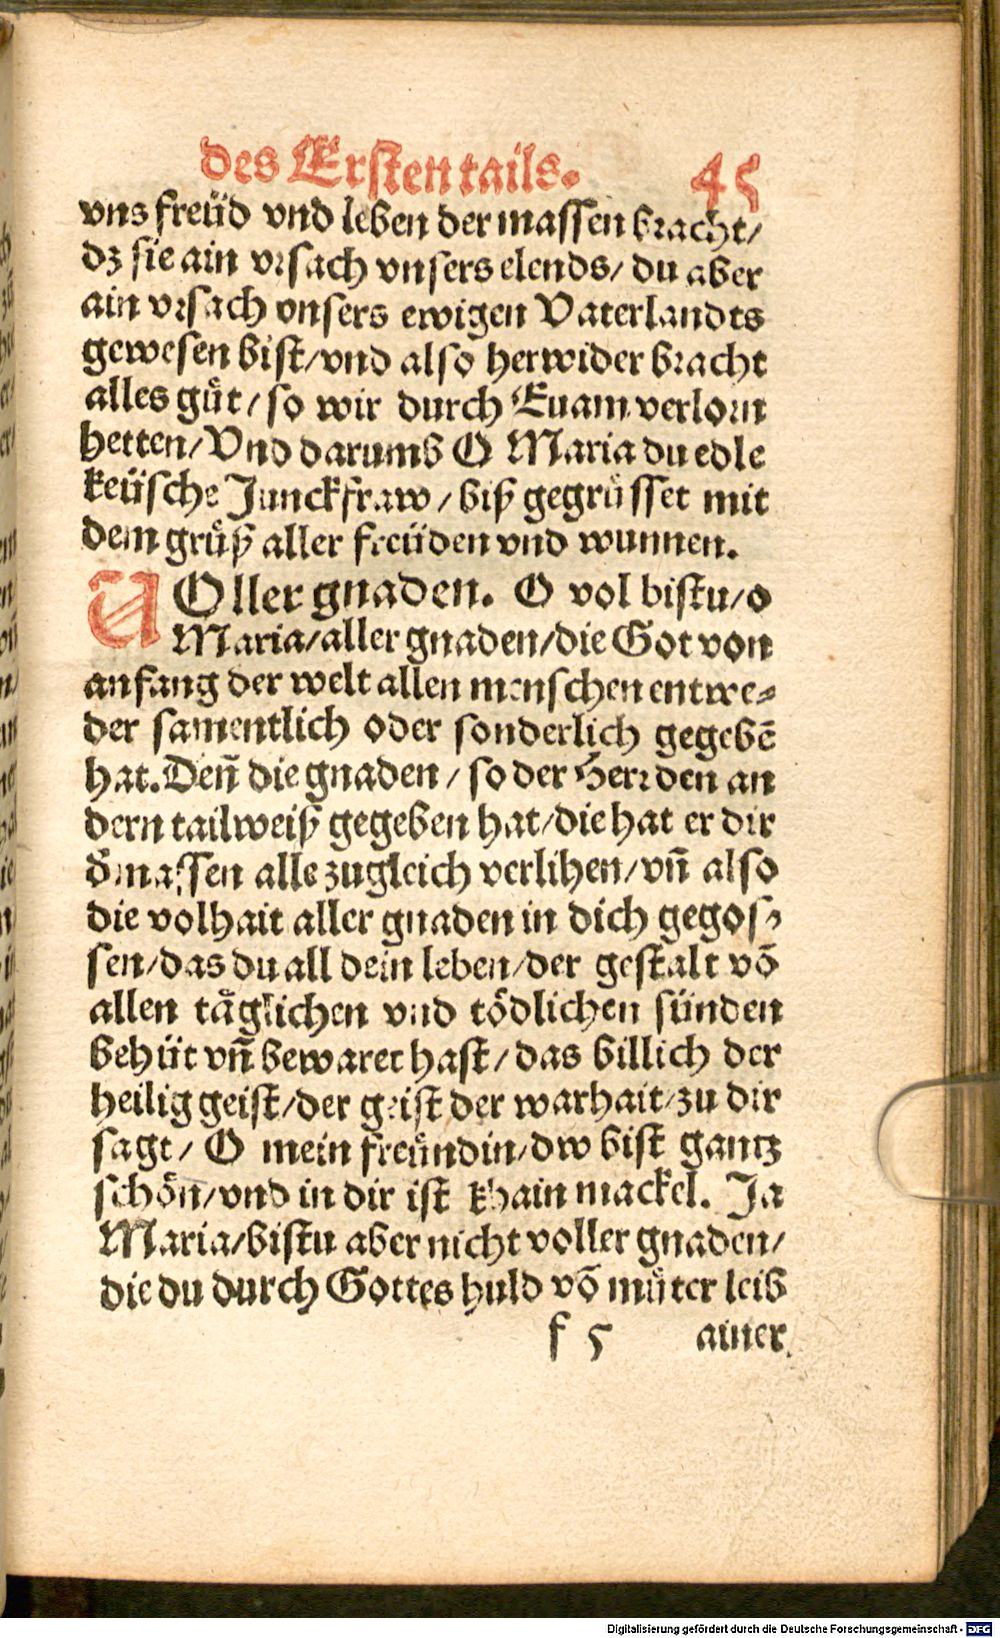 des Ersten tails. 45
vns freüd vnd leben der massen bracht/
dz sie ain vrsach vnsers elends/ du aber
ain vrsach vnsers ewigen Vaterlandts
gewesen bist/vnd also herwider bracht
alles guͤt/ so wir durch Euam verlorn
hetten/ Vnd darumb O Maria du edle
keüsche Junckfraw/ biß gegruͤsset mit
dem gruͤß aller freüden vnd wunnen.
AOller gnaden. O vol bistu/o
Maria/aller gnaden/die Got von
anfang der welt allen menschen entwe⸗
der samentlich oder sonderlich gegebẽ
hat. Deñ die gnaden/ so der Herr den an
dern tailweiß gegeben hat/die hat er dir
d̃massen alle zugleich verlihen/ vñ also
die volhait aller gnaden in dich gegos⸗
sen/das du all dein leben/der gestalt võ
allen taͤglichen vnd tödlichen sünden
behüt vñ bewaret hast/ das billich der
heilig geist/der geist der warhait/zu dir
sagt/ O mein freündin/dw bist gantz
schön/vnd in dir ist khain mackel. Ja
Maria/bistu aber nicht voller gnaden/
die du durch Gottes huld võ muͤter leib
f 5 ainer
Digitalisierung gefördert durch die Deutsche Forschungsgemeinschaft - DFG